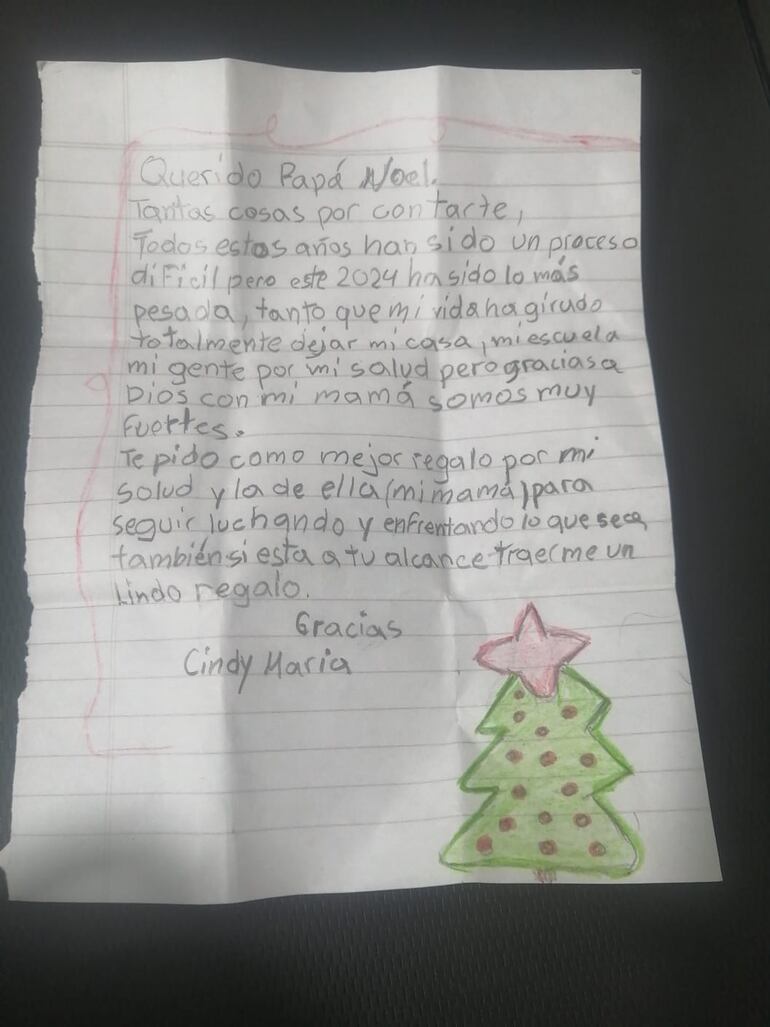 Querido Papá Noel.
Tantas cosas por contarte,
Todos estos años han sido un proceso
difícil pero este 2024 ha sido lo más
pesada, tanto que mi vida ha girado
totalmente dejar mi casa, mi escuela
mi gente por mi salud pero gracias a
Dios con mi mamá somos muy
fuertes.
Te pido como mejor regalo por mi
salud y la de ella (mi mamá) para
seguir luchando y enfrentando lo que sea,
también si esta a tu alcance traerme un
Lindo regalo.
Gracias
Cindy Maria